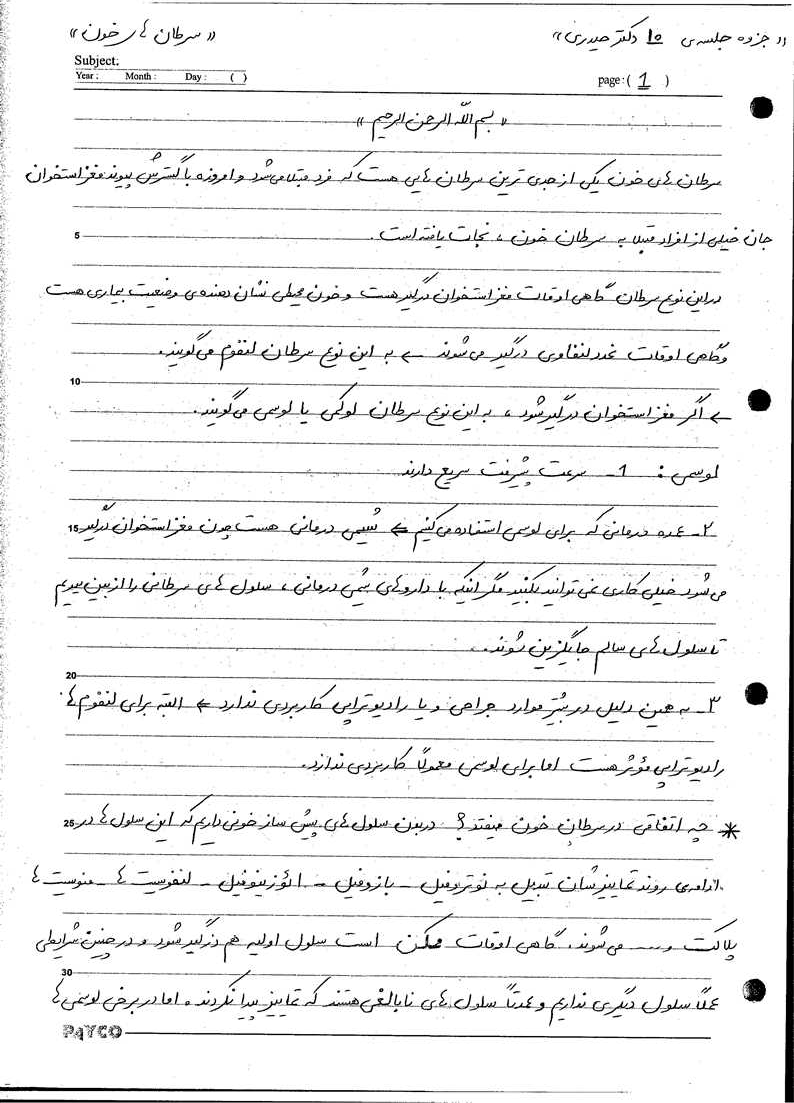 «جزوه جلسه ی 10 دکتر حیدری» «سرطان های خون»
Subject:
Year: Month: Day: ( ) page: ( 1 )
«بسم الله الرحمن الرحیم»
سرطان های خون یکی از جدی ترین سرطان هایی هست که فرد مبتلا می شود و امروزه با گسترش پیوند مغز استخوان
جان خیلی از افراد مبتلا به سرطان خون، نجات یافته است.
5
در این نوع سرطان گاهی اوقات مغز استخوان درگیر هست و خون محیطی نشان دهنده ی وضعیت بیماری هست
و گاهی اوقات غدد لنفاوی درگیر می شوند ← به این نوع سرطان لنفوم می گویند.
10
← اگر مغز استخوان درگیر شود، به این نوع سرطان لوکمی یا لوسمی می گویند.
لوسمی: 1- سرعت پیشرفت سریع دارند
2- عمده درمانی که برای لوسمی استفاده می کنیم ← شیمی درمانی هست چون مغز استخوان درگیر 15
می شود خیلی کاری نمی توانید بکنید مگر اینکه با داروهای شیمی درمانی، سلول های سرطانی را از بین ببریم
تا سلول های سالم جایگزین شوند.
20
3- به همین دلیل در بیشتر موارد جراحی و یا رادیوتراپی کاربردی ندارد ← البته برای لنفوم ها
رادیوتراپی مؤثر هست اما برای لوسمی معمولاً کاربردی ندارد.
* چه اتفاقی در سرطان خون میفتد؟ در بدن سلول های پیش ساز خونی داریم که این سلول ها در 25
ادامه ی روند تمایزشان تبدیل به نوتروفیل - بازوفیل - ائوزینوفیل - لنفوسیت ها - منوسیت ها
پلاکت و ... می شوند. گاهی اوقات ممکن است سلول اولیه هم درگیر شود و در چنین شرایطی
30
عملاً سلول دیگری نداریم و عمدتاً سلول های نابالغی هستند که تمایز پیدا نکردند. اما در برخی لوسمی ها
PAYCO